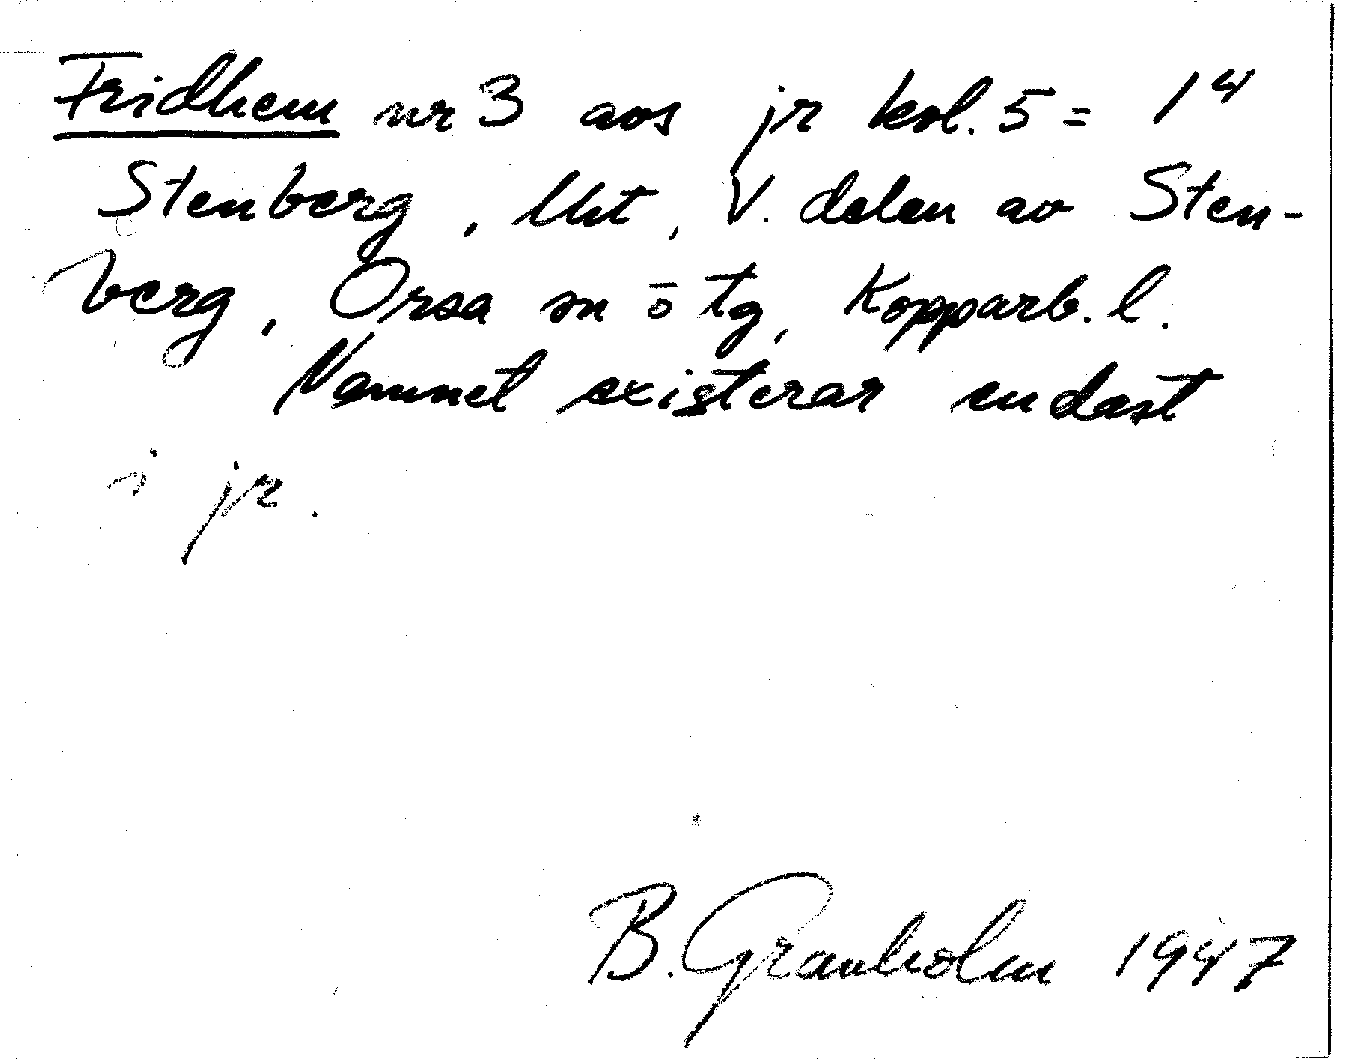 Fridhem nr 3 avs jr kol. 5 = 1⁴
Stenberg, Uht, V. delen av Sten-
berg, Orsa sn o tg, Kopparb. l.
Namnet existerar endast
i jr.
B. Granholm 1947